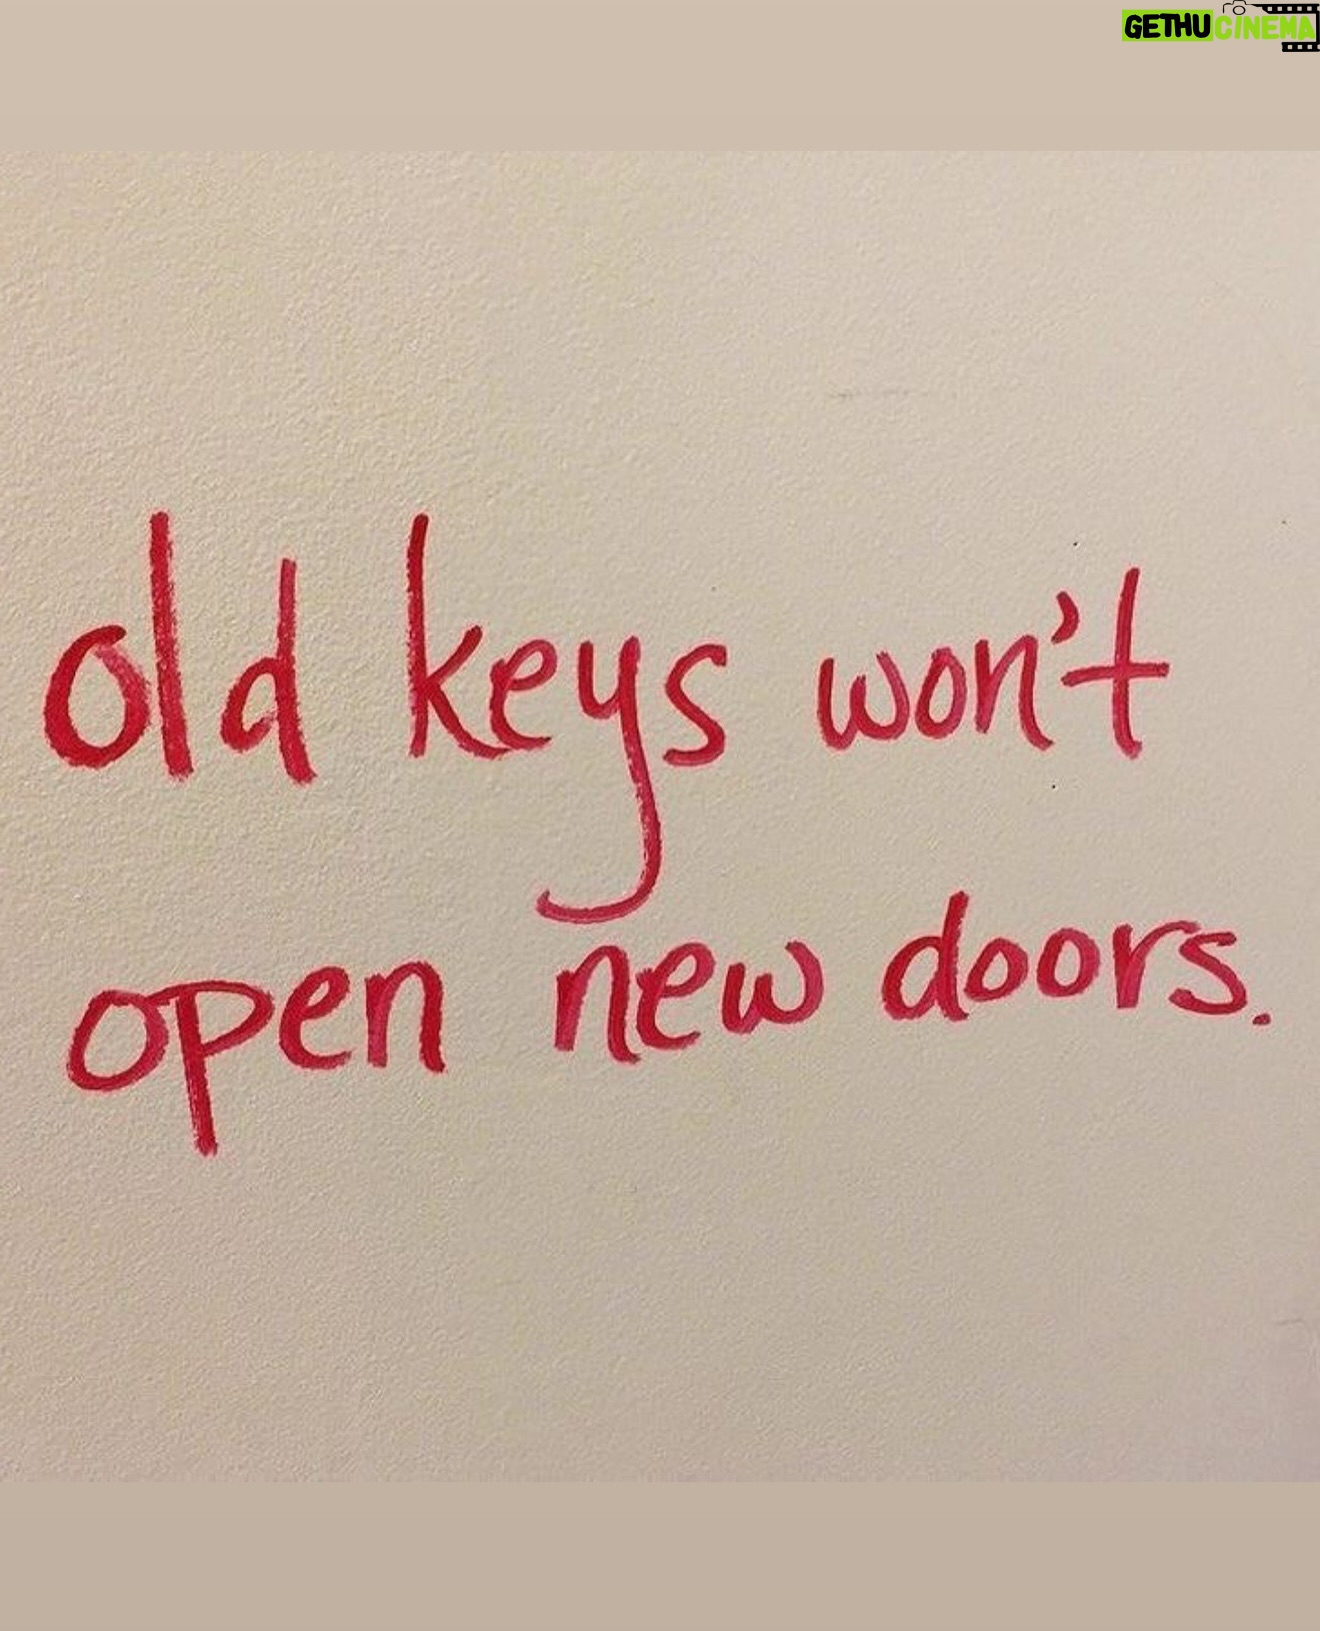 GETHUCINEMA
old keys won't
open new doors.